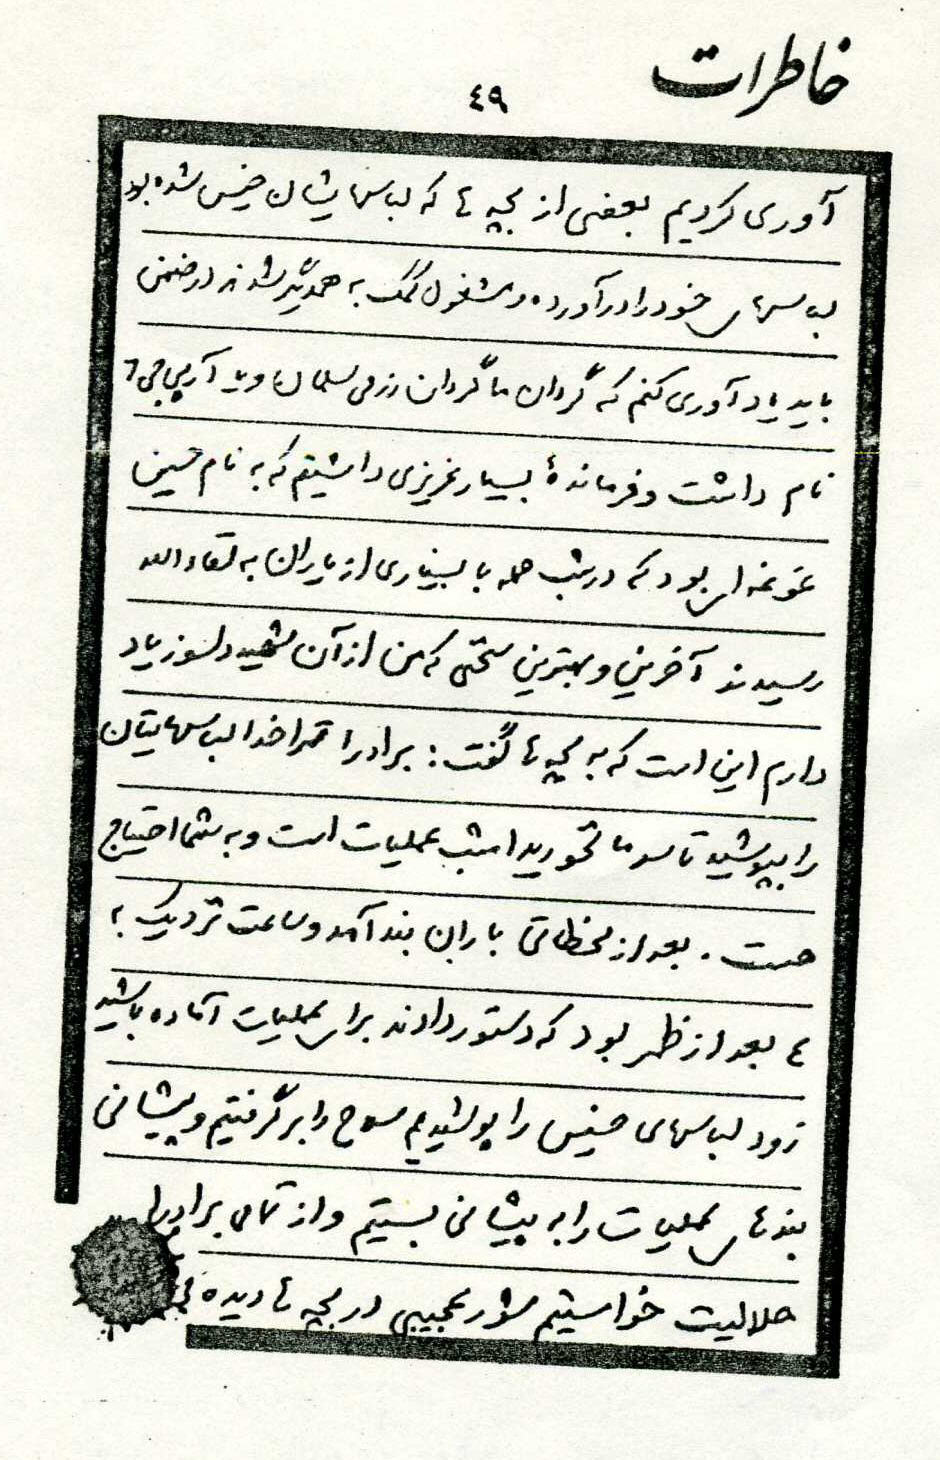 خاطرات
٤٩
آوری کردیم بعضی از بچه ها که لباسهایشان خیس شده بود
لباسهای خود را در آورده و مشغول کمک به همدیگر شدند در ضمن
باید یاد آوری کنم که گردان ما گردان رزمی سلمان و
نام داشت و فرماندهٔ بسیار عزیزی داشتیم که به نام حسین
بود که در شب حمله با بسیاری از یاران به لقاء الله
رسیدند آخرین و بهترین سخنی که من از آن شهید دلسوز یاد
دارم این است که به بچه ها گفت: برادرا لباسهایتان
را بپوشید تا سرما نخورید امشب عملیات است و به شما احتیاج
هست. بعد از لحظاتی باران بند آمد و ساعت نزدیک به
٤ بعد از ظهر بود که دستور دادند برای عملیات آماده باشید
زود لباسهای خیس را پوشیدیم سلاح را برگرفتیم و پیشانی
بندهای عملیات را به پیشانی بستیم و از تمامی
حلالیت خواستیم شور عجیبی در بچه ها دیده